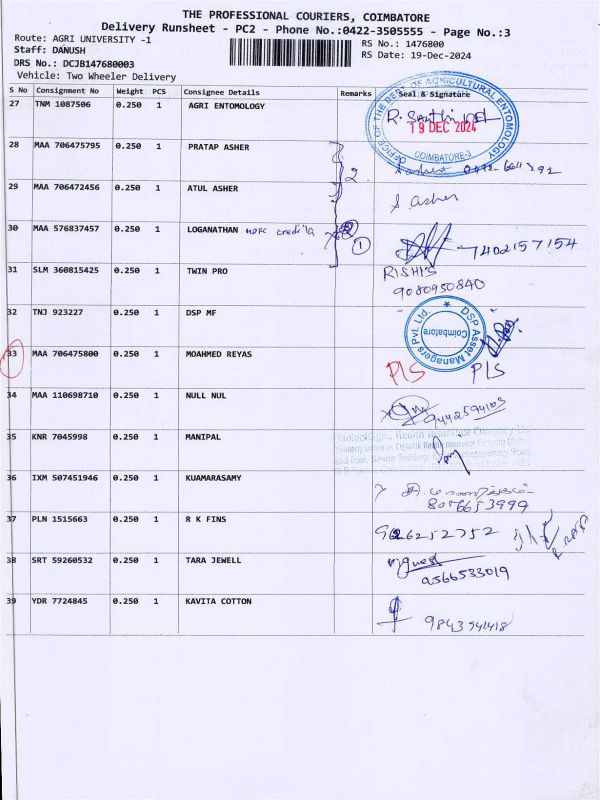 THE PROFESSIONAL COURIERS, COIMBATORE
Delivery Runsheet - PC2 - Phone No.:0422-3505555 - Page No.:3
Route: AGRI UNIVERSITY -1
RS No.: 1476800
Staff: DANUSH
RS Date: 19-Dec-2024
DRS No.: DCJB147680003
Vehicle: Two Wheeler Delivery
S No Consignment No Weight PCS Consignee Details Remarks Seal & Signature
27 TNM 1087506 0.250 1 AGRI ENTOMOLOGY
19 DEC 2024
COIMBATORE-3
28 MAA 706475795 0.250 1 PRATAP ASHER 2
29 MAA 706472456 0.250 1 ATUL ASHER S Asher
30 MAA 576837457 0.250 1 LOGANATHAN HDFC credila 1 7402157154
31 SLM 360815425 0.250 1 TWIN PRO RISHI'S
9080950840
32 TNJ 923227 0.250 1 DSP MF
DSP Asset Managers Pvt. Ltd. Coimbatore
33 MAA 706475800 0.250 1 MOAHMED REYAS P/S P/S
34 MAA 110698710 0.250 1 NULL NUL 9442594103
35 KNR 7045998 0.250 1 MANIPAL
36 IXM 507451946 0.250 1 KUAMARASAMY
8056653999
37 PLN 1515663 0.250 1 R K FINS 9626252752
38 SRT 59260532 0.250 1 TARA JEWELL
9566533019
39 YDR 7724845 0.250 1 KAVITA COTTON